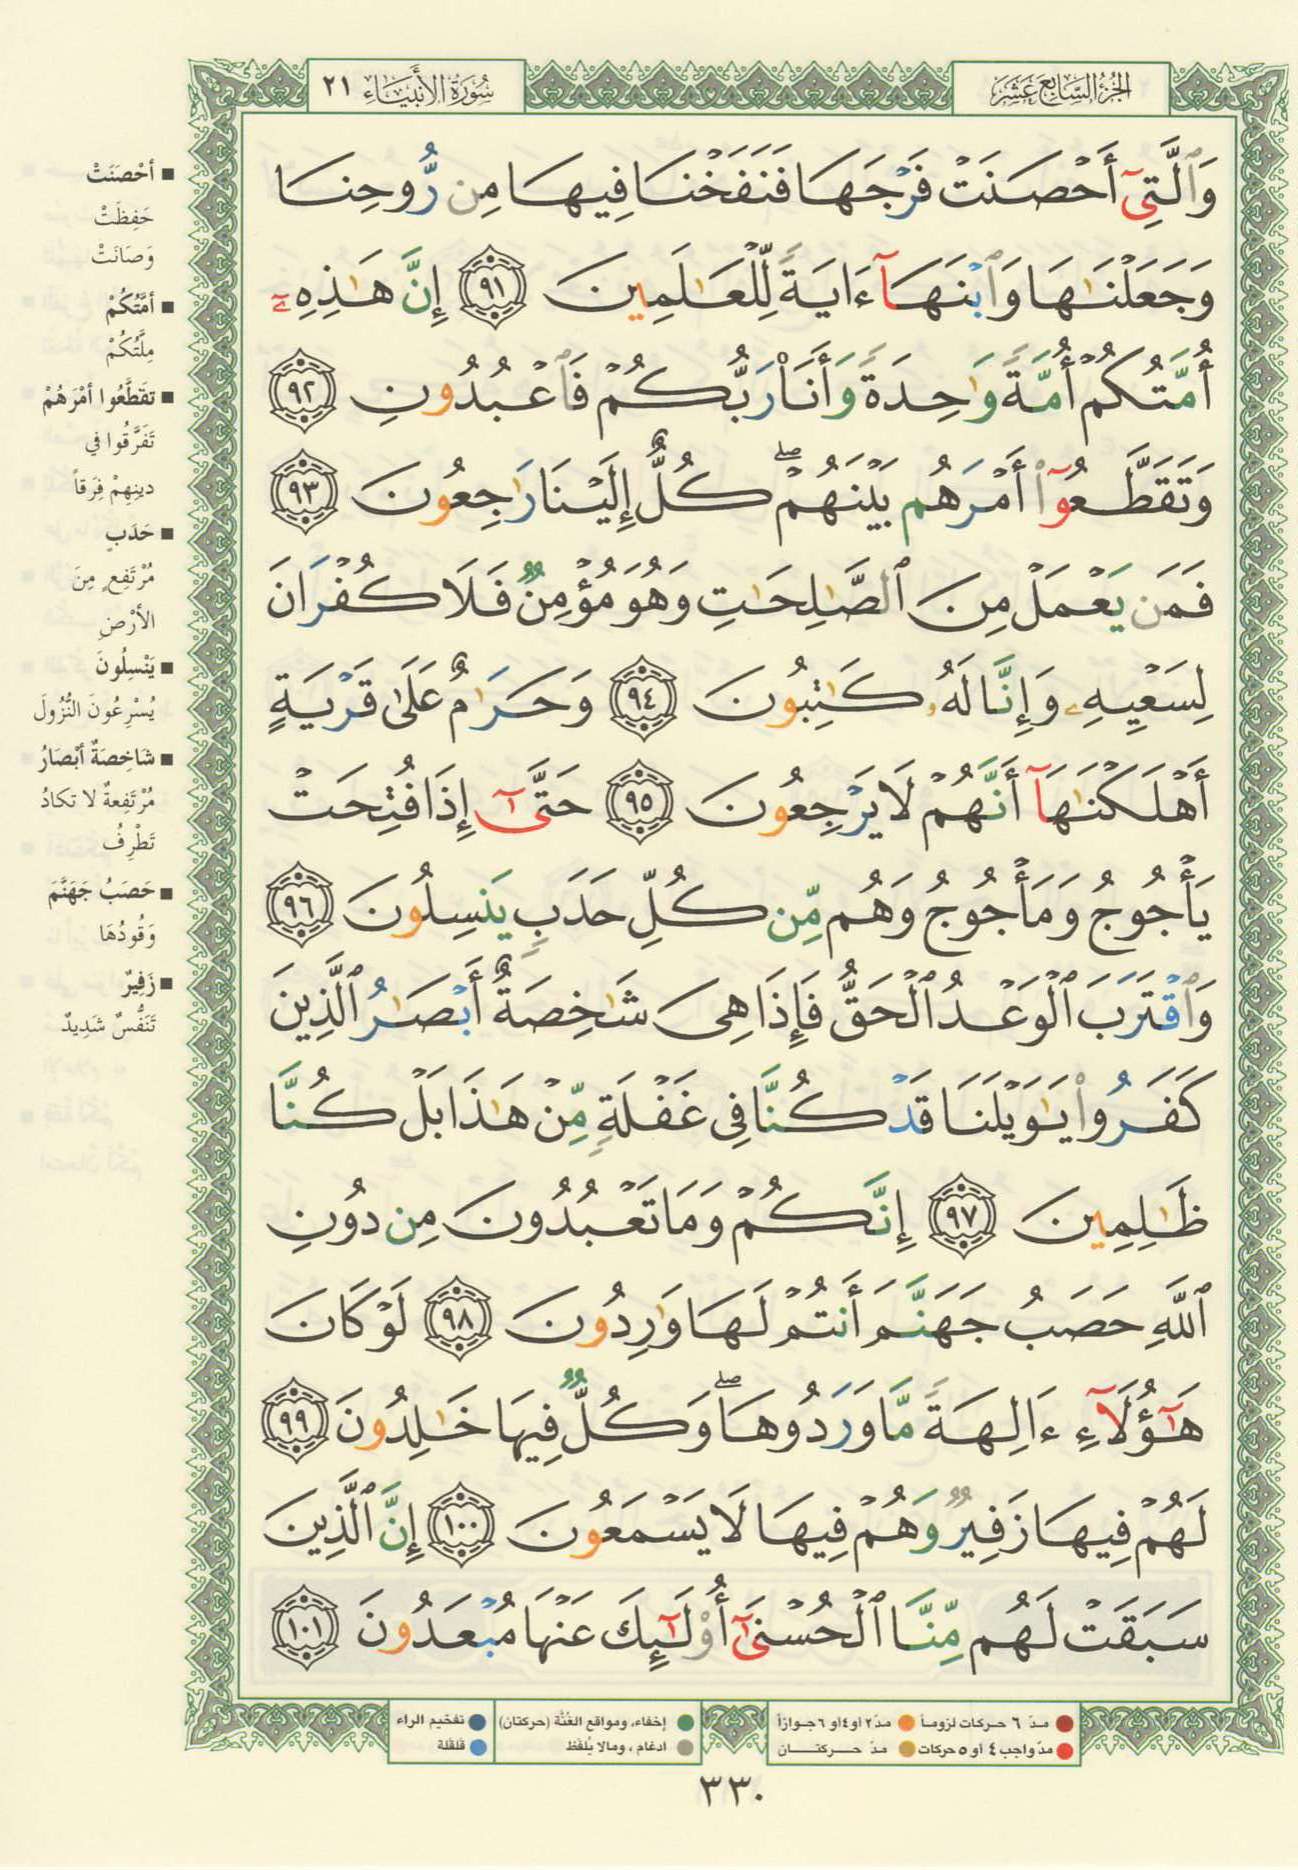 الجُزْءُ السَّابِعَ عَشَرَ
سُورَةُ الأَنبِيَاءِ ٢١
وَٱلَّتِىٓ أَحْصَنَتْ فَرْجَهَا فَنَفَخْنَا فِيهَا مِن رُّوحِنَا
وَجَعَلْنَٰهَا وَٱبْنَهَآ ءَايَةً لِّلْعَٰلَمِينَ ﴿٩١﴾ إِنَّ هَٰذِهِۦٓ
أُمَّتُكُمْ أُمَّةً وَٰحِدَةً وَأَنَا۠ رَبُّكُمْ فَٱعْبُدُونِ ﴿٩٢﴾
وَتَقَطَّعُوٓا۟ أَمْرَهُم بَيْنَهُمْ ۖ كُلٌّ إِلَيْنَا رَٰجِعُونَ ﴿٩٣﴾
فَمَن يَعْمَلْ مِنَ ٱلصَّٰلِحَٰتِ وَهُوَ مُؤْمِنٌ فَلَا كُفْرَانَ
لِسَعْيِهِۦ وَإِنَّا لَهُۥ كَٰتِبُونَ ﴿٩٤﴾ وَحَرَٰمٌ عَلَىٰ قَرْيَةٍ
أَهْلَكْنَٰهَآ أَنَّهُمْ لَا يَرْجِعُونَ ﴿٩٥﴾ حَتَّىٰٓ إِذَا فُتِحَتْ
يَأْجُوجُ وَمَأْجُوجُ وَهُم مِّن كُلِّ حَدَبٍ يَنسِلُونَ ﴿٩٦﴾
وَٱقْتَرَبَ ٱلْوَعْدُ ٱلْحَقُّ فَإِذَا هِىَ شَٰخِصَةٌ أَبْصَٰرُ ٱلَّذِينَ
كَفَرُوا۟ يَٰوَيْلَنَا قَدْ كُنَّا فِى غَفْلَةٍ مِّنْ هَٰذَا بَلْ كُنَّا
ظَٰلِمِينَ ﴿٩٧﴾ إِنَّكُمْ وَمَا تَعْبُدُونَ مِن دُونِ
ٱللَّهِ حَصَبُ جَهَنَّمَ أَنتُمْ لَهَا وَٰرِدُونَ ﴿٩٨﴾ لَوْ كَانَ
هَٰٓؤُلَآءِ ءَالِهَةً مَّا وَرَدُوهَا ۖ وَكُلٌّ فِيهَا خَٰلِدُونَ ﴿٩٩﴾
لَهُمْ فِيهَا زَفِيرٌ وَهُمْ فِيهَا لَا يَسْمَعُونَ ﴿١٠٠﴾ إِنَّ ٱلَّذِينَ
سَبَقَتْ لَهُم مِّنَّا ٱلْحُسْنَىٰٓ أُو۟لَٰٓئِكَ عَنْهَا مُبْعَدُونَ ﴿١٠١﴾
■ أحْصَنَتْ
حَفِظَتْ
وَصَانَتْ
■ أمَّتُكُمْ
مِلَّتُكُمْ
■ تقَطَّعُوا أمْرَهُمْ
تَفَرَّقُوا في
دينِهِمْ فِرَقاً
■ حَدَبٍ
مُرْتَفِعٍ مِنَ
الأرْضِ
■ يَنْسِلُونَ
يُسْرِعُونَ النُّزُولَ
■ شَاخِصَةٌ أبْصَارُ
مُرْتَفِعةٌ لا تكادُ
تَطْرِفُ
■ حَصَبُ جَهَنَّمَ
وَقُودُهَا
■ زَفِيرٌ
تَنَفُّسٌ شَدِيدٌ
مدّ ٦ حركات لزوماً مدّ٢ او٤او ٦جوازاً
مدّ واجب ٤ أو ٥ حركات مدّ حركتان
إخفاء، ومواقع الغُنَّة (حركتان)
ادغام ، ومالا يُلفَظ
تفخيم الراء
قلقلة
٣٣٠